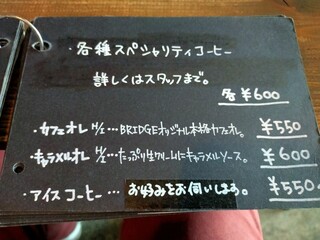 ・各種スペシャリティコーヒー
詳しくはスタッフまで。
各¥600
・カフェオレ H/I…BRIDGEオリジナル本格カフェオレ。 ¥550
・キャラメルオレ H/I…たっぷり生クリームにキャラメルソース。 ¥600
・アイスコーヒー… お好みをお伺いします。 ¥550